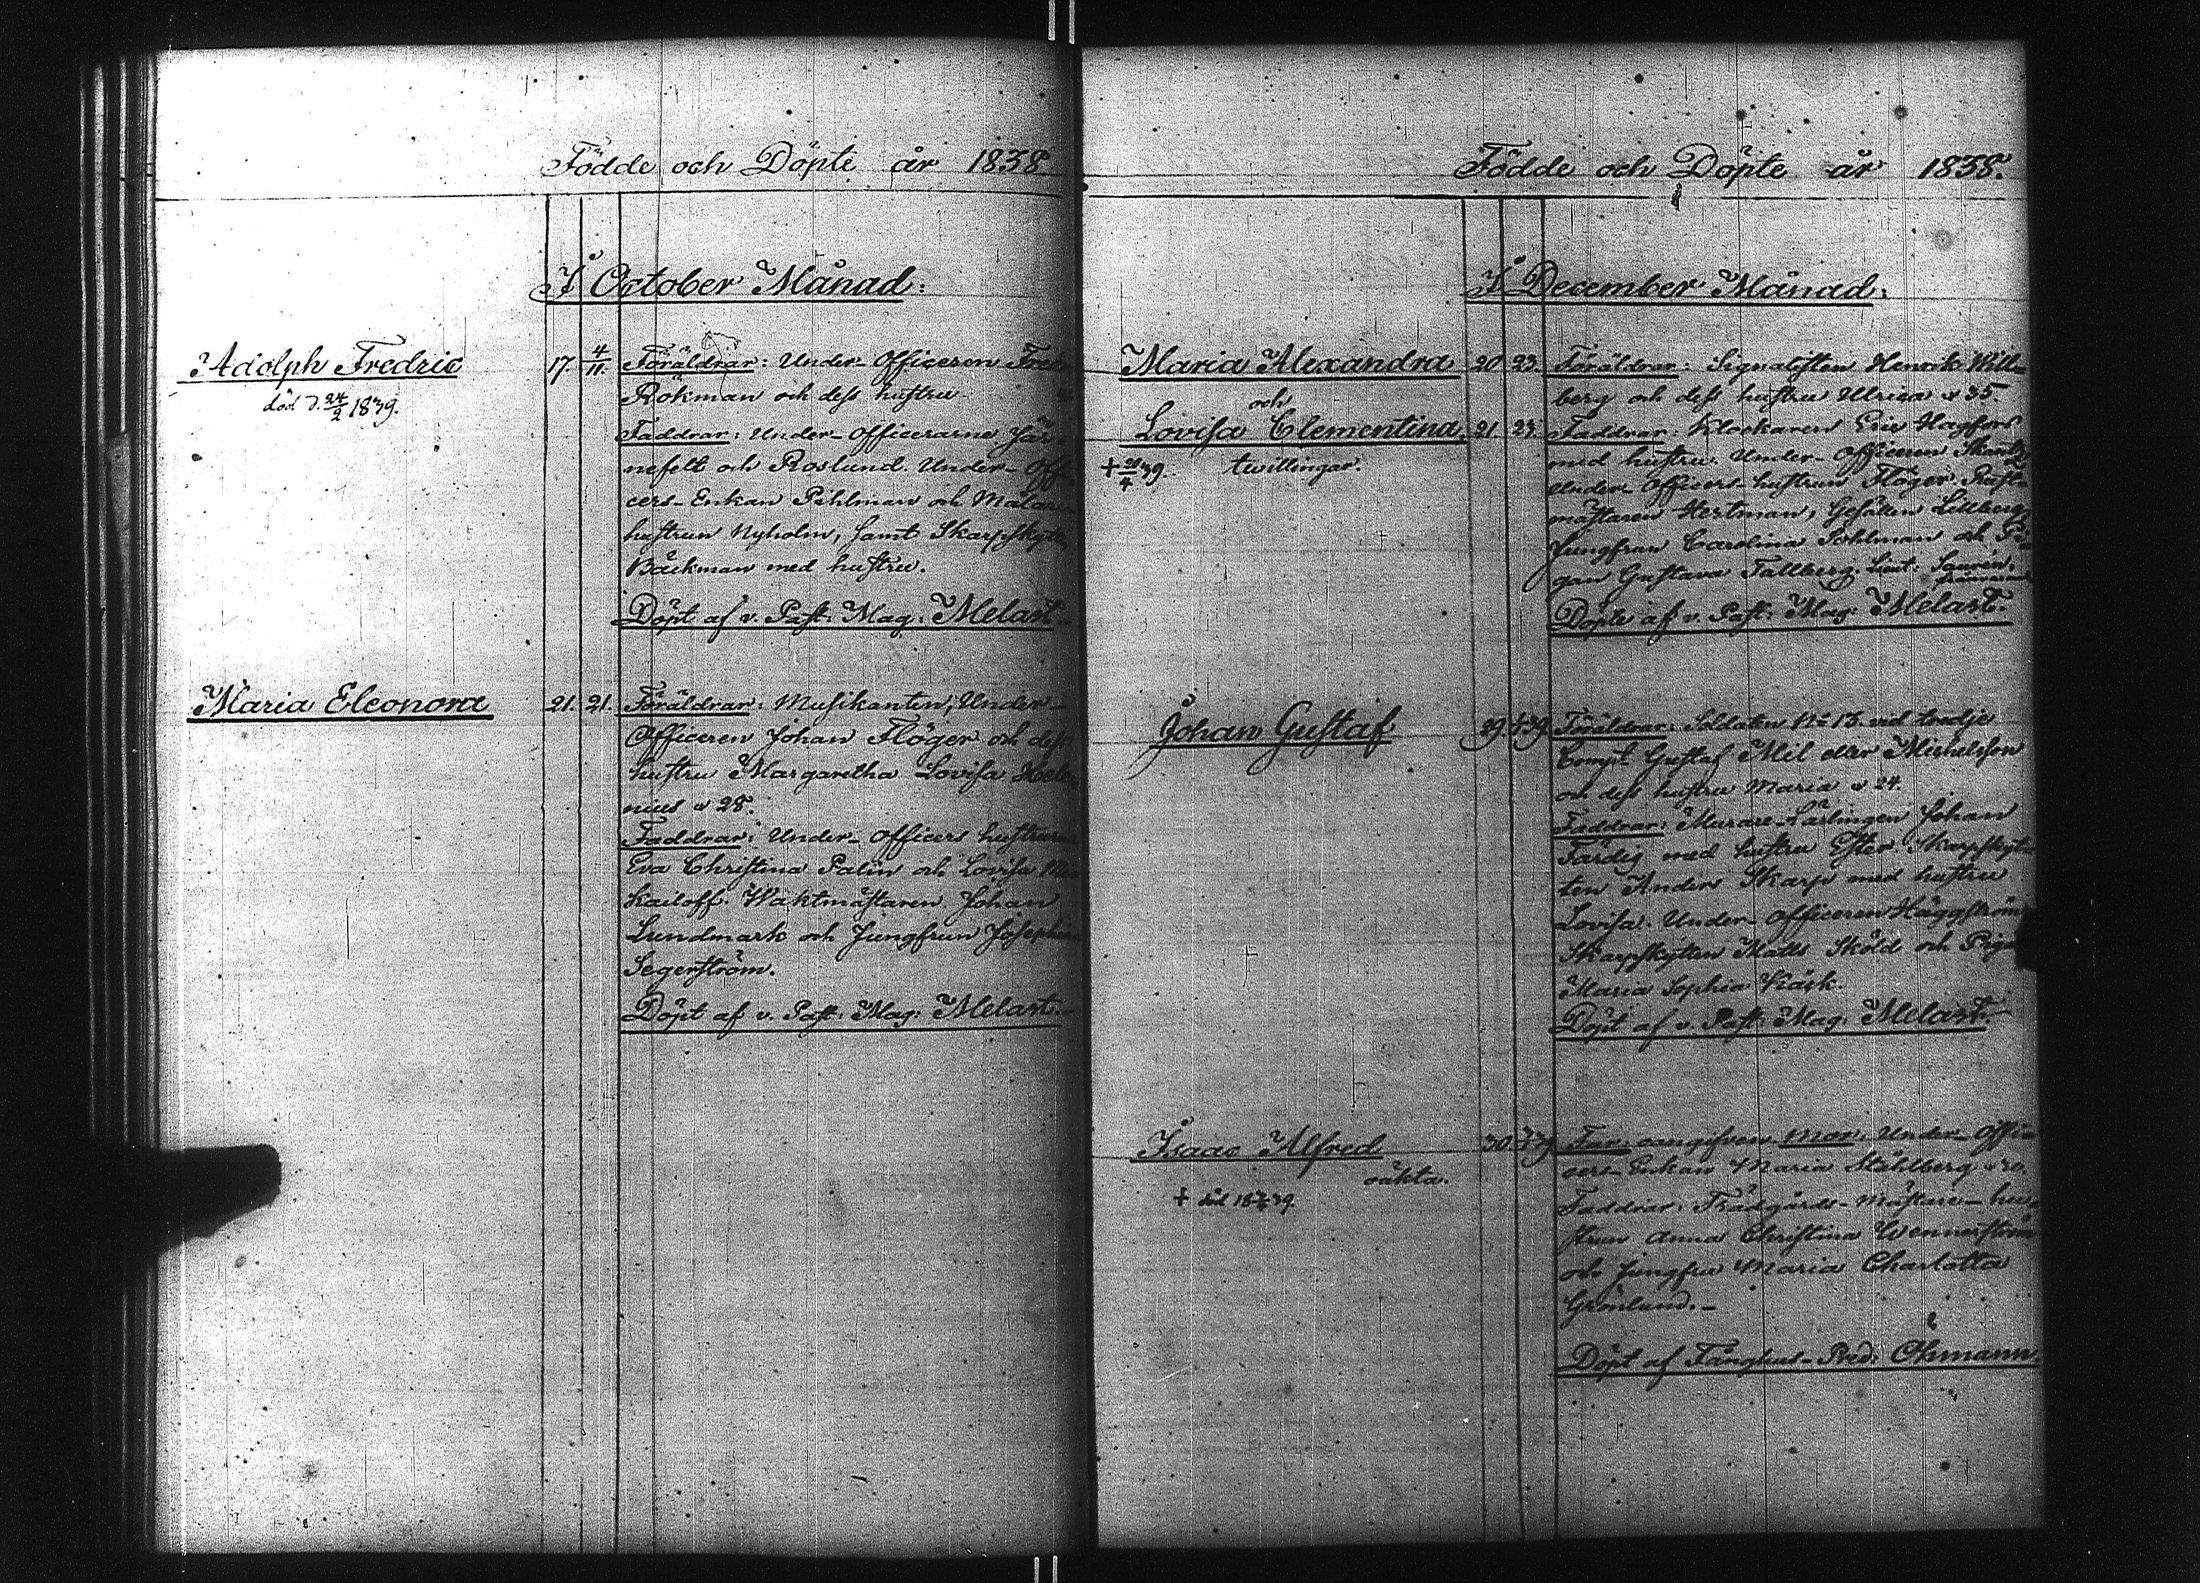 Födde och Döpte år 1838
I October Månad:
Adolph Fredric 17. 4/11. Föräldrar: Under-Officeren
död d. 24/2 1839.
Rökman och dess hustru.
Faddrar: Under-Officerarne Jär-
nefelt och Roslund. Under-Offi-
cers-Enkan Pahlman och Målar-
hustrun Nyholm, samt Skarpskytt
Bäckman med hustru.
Döpt af v. Past: Mag: Melart.
Maria Eleonora 21. 21. Föräldrar: Musikanten, Under-
Officeren Johan Flöger och dess
hustru Margaretha Lovisa
nius v 28.
Faddrar: Under-Officers hustrurna
Eva Christina Palin och Lovisa
kailoff. Waktmästaren Johan
Lundmark och Jungfrun Josephin
Segerström.
Döpt af v. Past: Mag: Melart.
Födde och Döpte år 1838.
I December Månad:
Maria Alexandra 20 23. Föräldrar: Signalisten Henrik Will-
och
berg och dess hustru Ulrica v 35.
Lovisa Clementina, 21. 23. Faddrar: Klockaren Eric Hagfors
twillingar.
med hustru. Under-Officeren
Under-Officers-hustrun Flöger
mästaren Hertman, Gesällen Lillberg
Jungfrun Carolina Sohlman och Pi-
gan Gustava Tallberg. Leut:
Döpte af v. Past: Mag: Melart.
Johan Gustaf 29. Föräldrar: Soldaten No 13. vid tredje
Comp: Gustaf Mil eller Michelsson
och dess hustru Maria v 24.
Faddrar: Murare-Lärlingen Johan
Färdig med hustru Ester Skarpskyt-
ten Anders Skarp med hustru
Lovisa. Under-Officeren Häggström
Skarpskytten Matts Sköld och Pigan
Maria Sophia Käck.
Döpt af v. Past: Mag: Melart.
Isaac Alfred 30. Far: oangifven Mor: Under-Offi-
oäkta.
cers-Enkan Maria Ståhlberg
Faddrar: Trädgårds-Mästare-hu-
strun Anna Christina Wennerström
och Jungfru Maria Charlotta
Grönlund.-
Döpt af Fånghus-Pred: Öhmann.